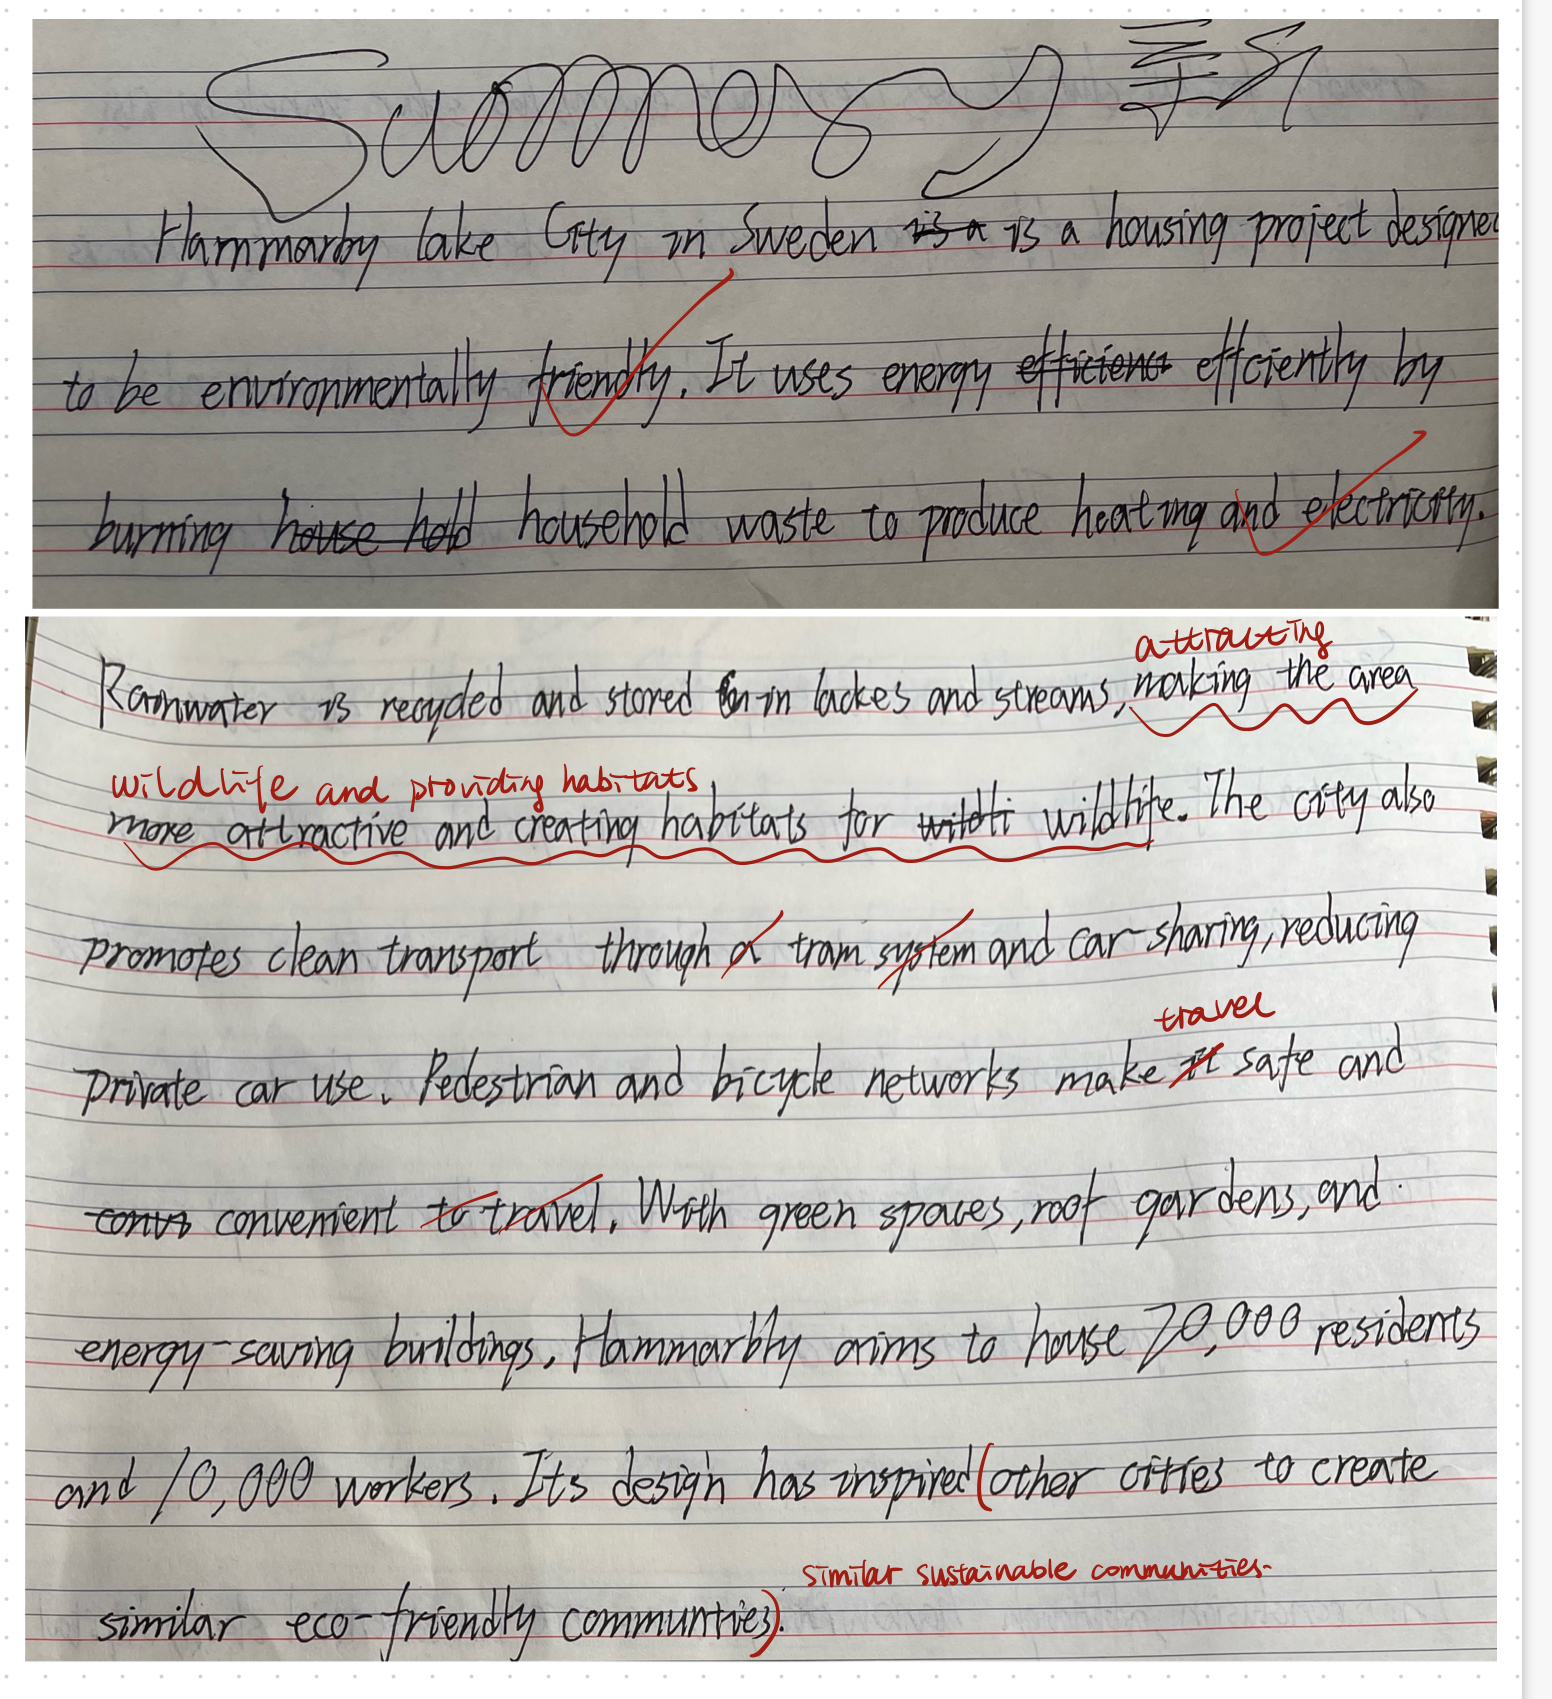 Summary
Hammarby lake City in Sweden is a is a housing project designed
to be environmentally friendly. It uses energy efficienc effciently by
burning house hold household waste to produce heating and electricity.
attracting
Rainwater is recycled and stored in lackes and streams, making the area
wildlife and providing habitats
more attractive and creating habitats for wildli wildlife. The city also
promotes clean transport through a tram system and car-sharing, reducing
travel
private car use. Pedestrian and bicycle networks make it safe and
convn convenient to travel. With green spaces, roof gardens, and
energy-saving buildings, Hammarbly aims to house 20,000 residents
and 10,000 workers. Its design has inspired (other cities to create
similar sustainable communities.
similar eco-friendly communties).